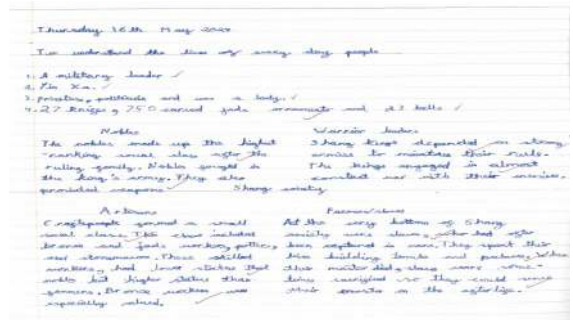 Thursday 16th May
To understand the lives of every day people
1. A military leader
2. Fin Xa.
3. priestess, and was a lady.
4. 27 knives, 750 carved jade ornaments and 23 bells
Nobles
The nobles made up the highest
ranking social class after the
ruling family. Nobles fought in
the king's army. They also
provided weapons.
Warrior leaders
Shang kings depended on strong
armies to maintain their rule.
The kings engaged in almost
constant war with their enemies.
Shang society
Artisans
Craftspeople formed a small
social class. This class included
bronze and jade workers, potters,
and stonemasons. These skilled
workers, had lower status than
nobles but higher status than
farmers. Bronze workers were
especially valued.
Farmers/slaves
At the very bottom of Shang
society were slaves, who had often
been captured in war. They spent their
lives building tombs and palaces. When
their master died, slaves were some-
times sacrificed so they could serve
their master in the afterlife.